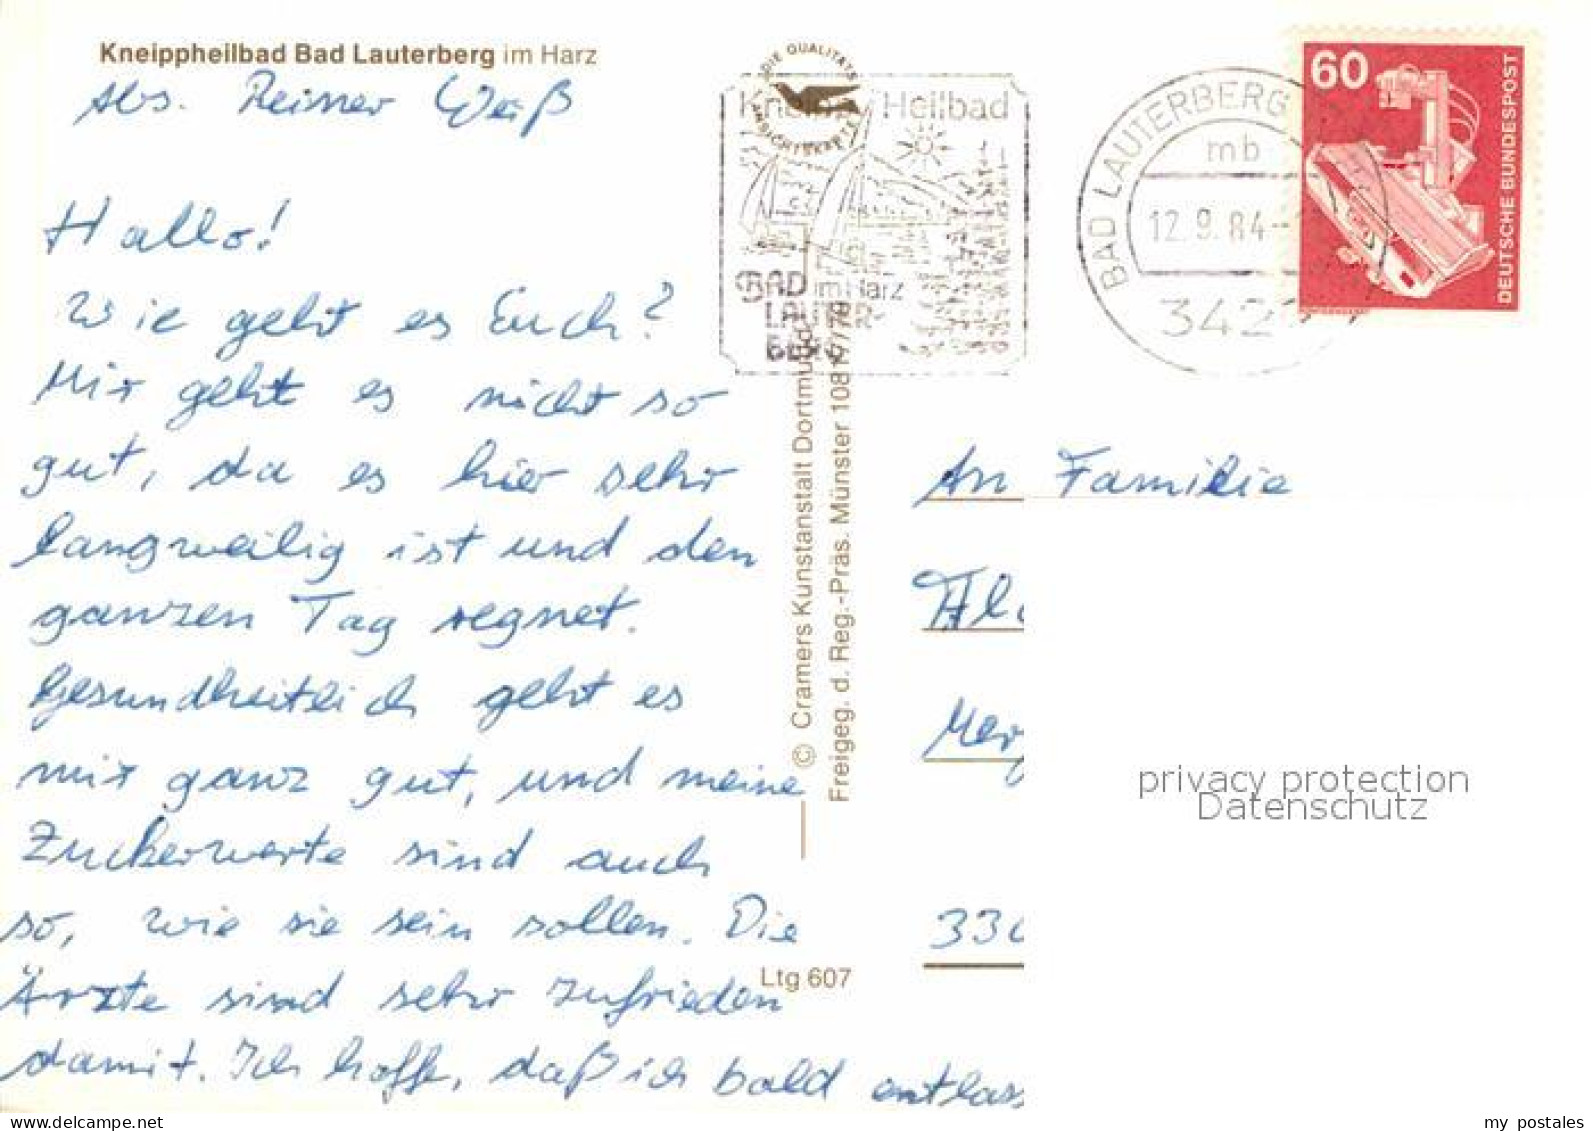 Kneippheilbad Bad Lauterberg im Harz
Abs. Reiner Weiß
Hallo!
Wie geht es Euch?
Mir geht es nicht so
gut, da es hier sehr
langweilig ist und den
ganzen Tag regnet.
Gesundheitlich geht es
mir ganz gut, und meine
Zuckerwerte sind auch
so, wie sie sein sollen. Die
Ärzte sind sehr zufrieden
damit. Ich hoffe, daß ich bald entlass
Ltg 607
© Cramers Kunstanstalt Dortmund
Freigeg. d. Reg.-Präs. Münster
DIE QUALITÄTS
ANSICHTSKARTE
Kneipp Heilbad
BAD im Harz
LAUTER-
BERG
BAD LAUTERBERG
mb
12.9.84
342
60
DEUTSCHE BUNDESPOST
An Familie
330
privacy protection
Datenschutz
my postales